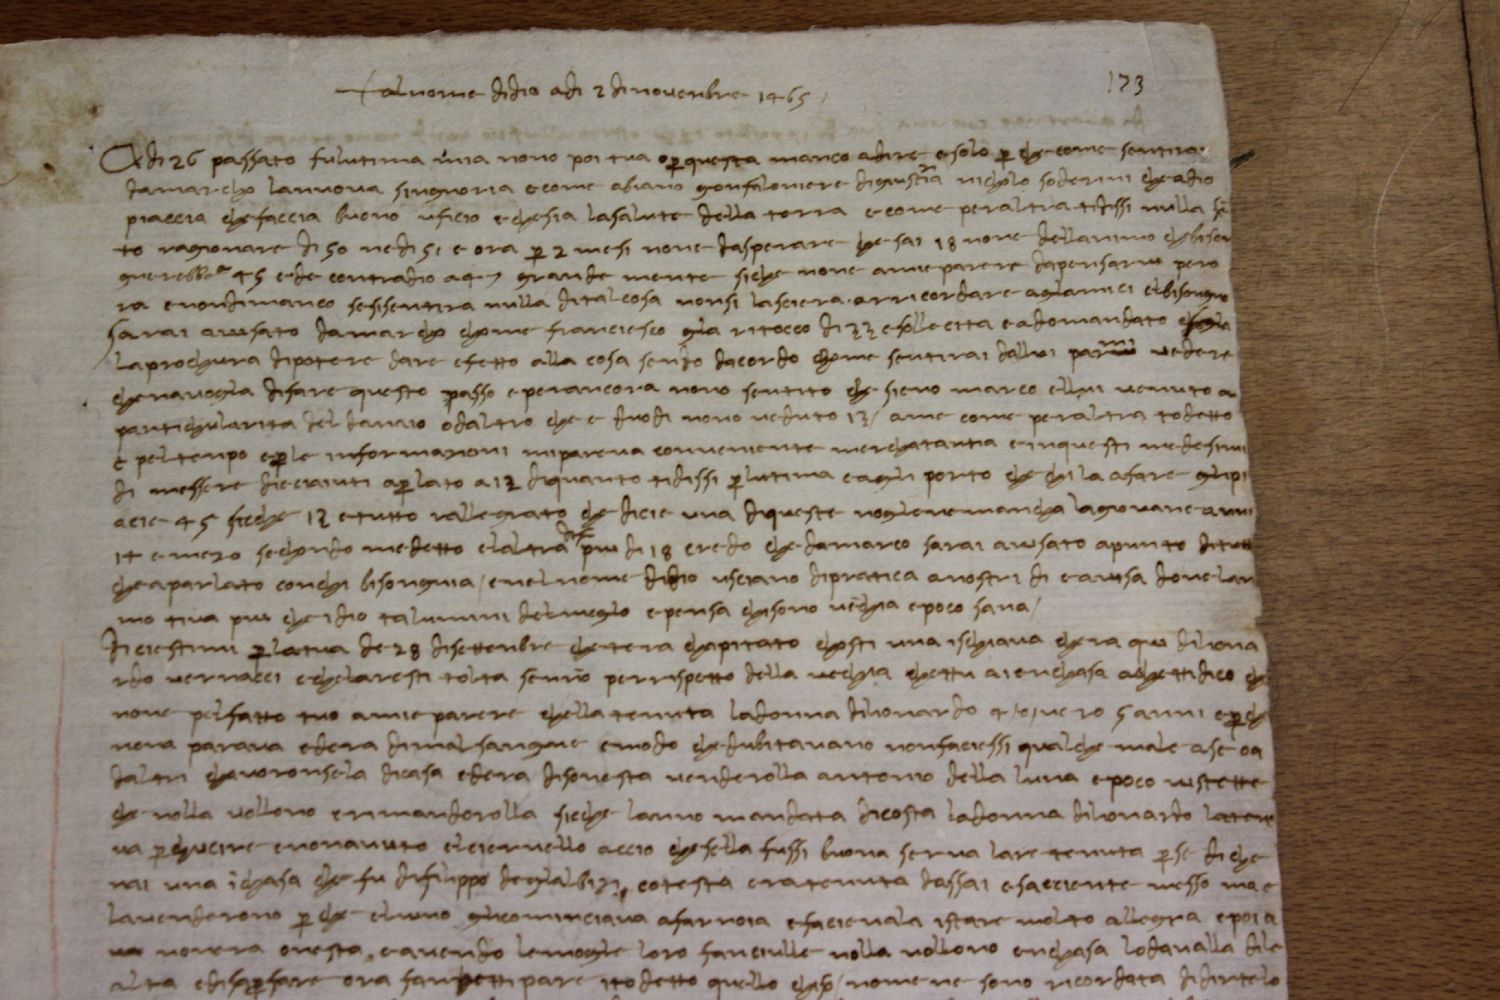 al nome di dio adi 2 di novenbre 1465
173
Adi 26 passato fu lutima mia nono poi tua e per questa manco a dire e solo per che come sentirai
da marcho la nuova singnoria e come abiano gonfaloniere di giustia nicholo soderini che a dio
piaccia che faccia buono uficio e che sia la salute della terra e come per altra ti dissi nulla sē
to ragionare di 50 ne di 51 e ora per 2 mesi none da sperare che sai 18 none dell animo che bison
gnerebbe 45 e de contradio a 47 grande mente siche none a mie parere da pensarvi per o
ra e nondimanco se si sentira nulla di tal cosa non si lasciera arricordare agl amici el bisongno
sarai avisato da marcho chome francescho gia ritocco di 33 e sollecitta e a domandato
la prochura di potere dare efetto alla cosa sendo dacordo chome sentirai da llui parmi vedere
che n a voglia di fare questo passo e per ancora nono sentito che sieno marco e llui venuto a
partichularita del danaio o daltro che e duo di nono veduto 13 / a me come per altra to detto
e pel tenpo e per le informazioni mi pareva conveniente merchatantia e in questi medesimi
di messere dieciaiuti a per lato a 12 di quanto ti dissi per lutima e agli porto che chi la a fare gli pi
acie 45 sieche 13 e tutto rallegrato che dicie una di queste voglie ne mancha la giovane a anni
14 e mezo sechondo me detto e laltra piu di 18 credo che da marco sarai avisato apunto di tutto
che a parlato con chi bisongnia / e nel nome di dio usciano di pratica a nostri di e avisa dove lan
mo tira piu che idio ta lumini del meglio e pensa chi sono vechia e poco sana /
Diciestimi per la tua de 28 di settenbre che tera chapitato chosti una ischiava che ra qui di liona
rdo vernacci e che laresti tolta se nno per rispetto della vechia che ttu ai en chasa a che tti dico che
none pel fatto tuo a mie parere chella tenuta la donna di lionardo 4 / o vero 5 anni e per che
nonn aparava ed era di mal sangue e modo che dubitavano non faciessi qualche male a se o a
daltri chavoronsela di casa ed era disonesta venderolla antonio della luna e poco vi stette
che nolla vollono e rimanderolla sieche lanno mandata di costa la donna di lionardo la tene
va per chucire e nonavuto el ciervello accio che sella fussi buona serva lare tenuta per se di che
nai una i chasa che fu di filippo degli albizi e cotesta era tenuta dassai e saccente nesso ma e
la venderono per che el vino gli cominciava a far noia e facievala istare molto allegra e poi a
nonera onesta e avendo le moglie loro fanciulle nolla vollono en chasa lodavalla di le
alta e di saper fare ora fanne tti pare i to detto quello chi so / nome ne sono ricordata di dirtelo